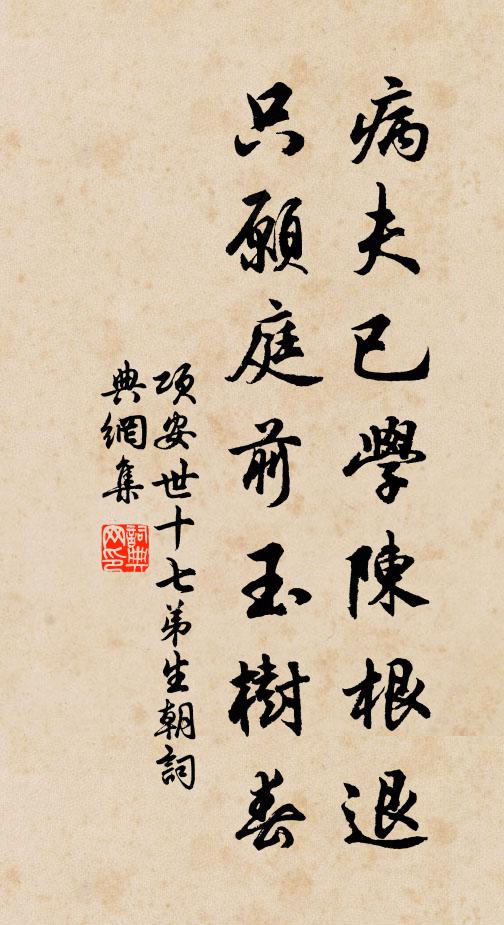 病夫已學陳根退
只願庭前玉樹春
項安世十七弟生朝詞
典網集
詞典網印